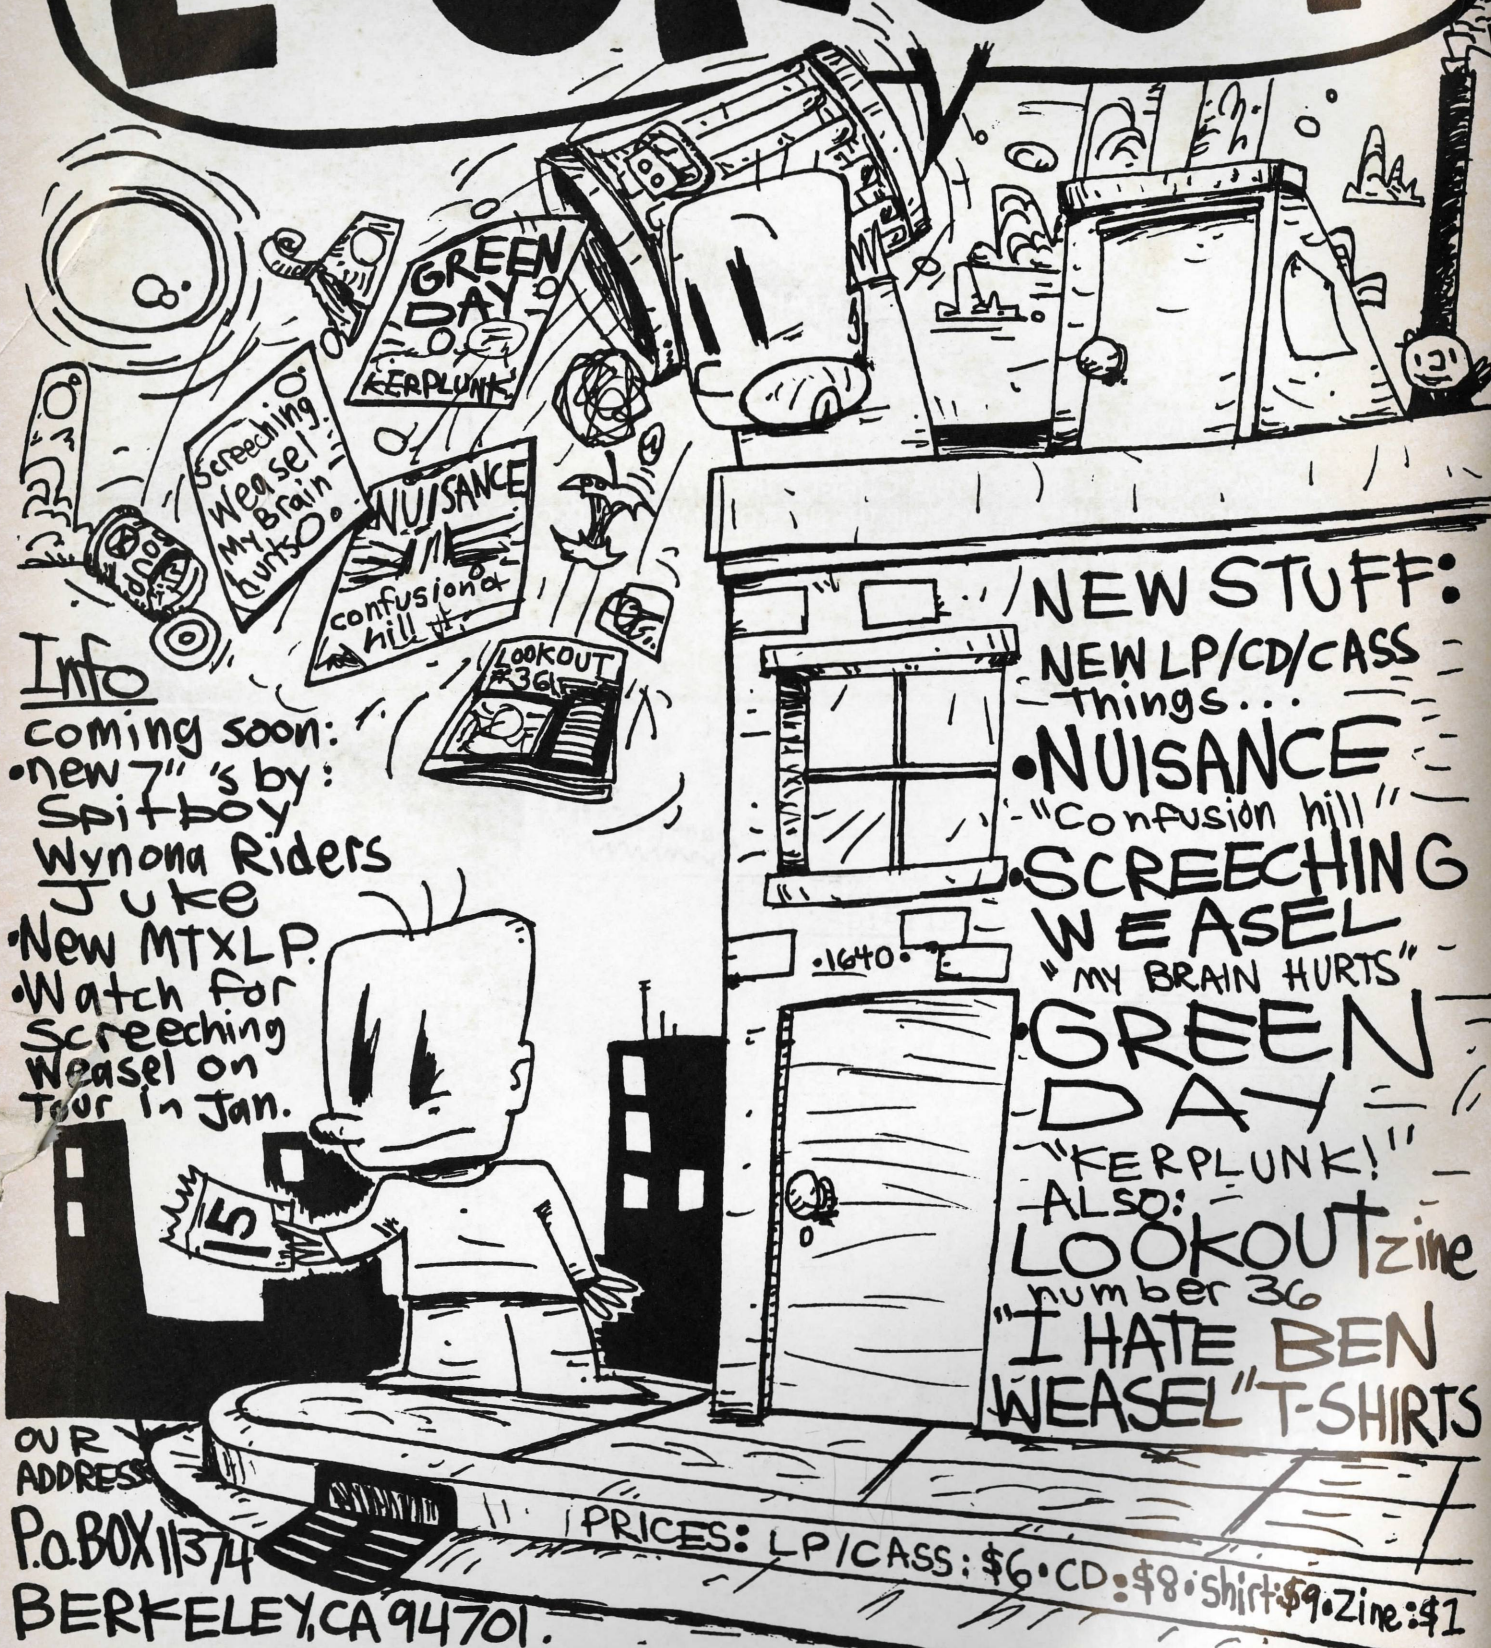 GREEN
DAY
KERPLUNK!
Screeching
Weasel
My Brain
hurts
NUISANCE
confusion
hill
SOUP
LOOKOUT
#36
Info
coming soon:
•new 7" 's by:
Spitboy
Wynona Riders
Juke
•New MTX LP.
•Watch for
Screeching
Weasel on
Tour in Jan.
15
NEW STUFF:
NEW LP/CD/CASS
things...
•NUISANCE
"Confusion hill"
•SCREECHING
WEASEL
"MY BRAIN HURTS"
•GREEN
DAY
"KERPLUNK!"
ALSO:
LOOKOUT zine
number 36
"I HATE BEN
WEASEL" T-SHIRTS
•1640•
OUR
ADDRESS
P.O. BOX 11374
BERKELEY, CA 94701.
PRICES: LP/CASS: $6•CD:$8•Shirt:$9•Zine:$1